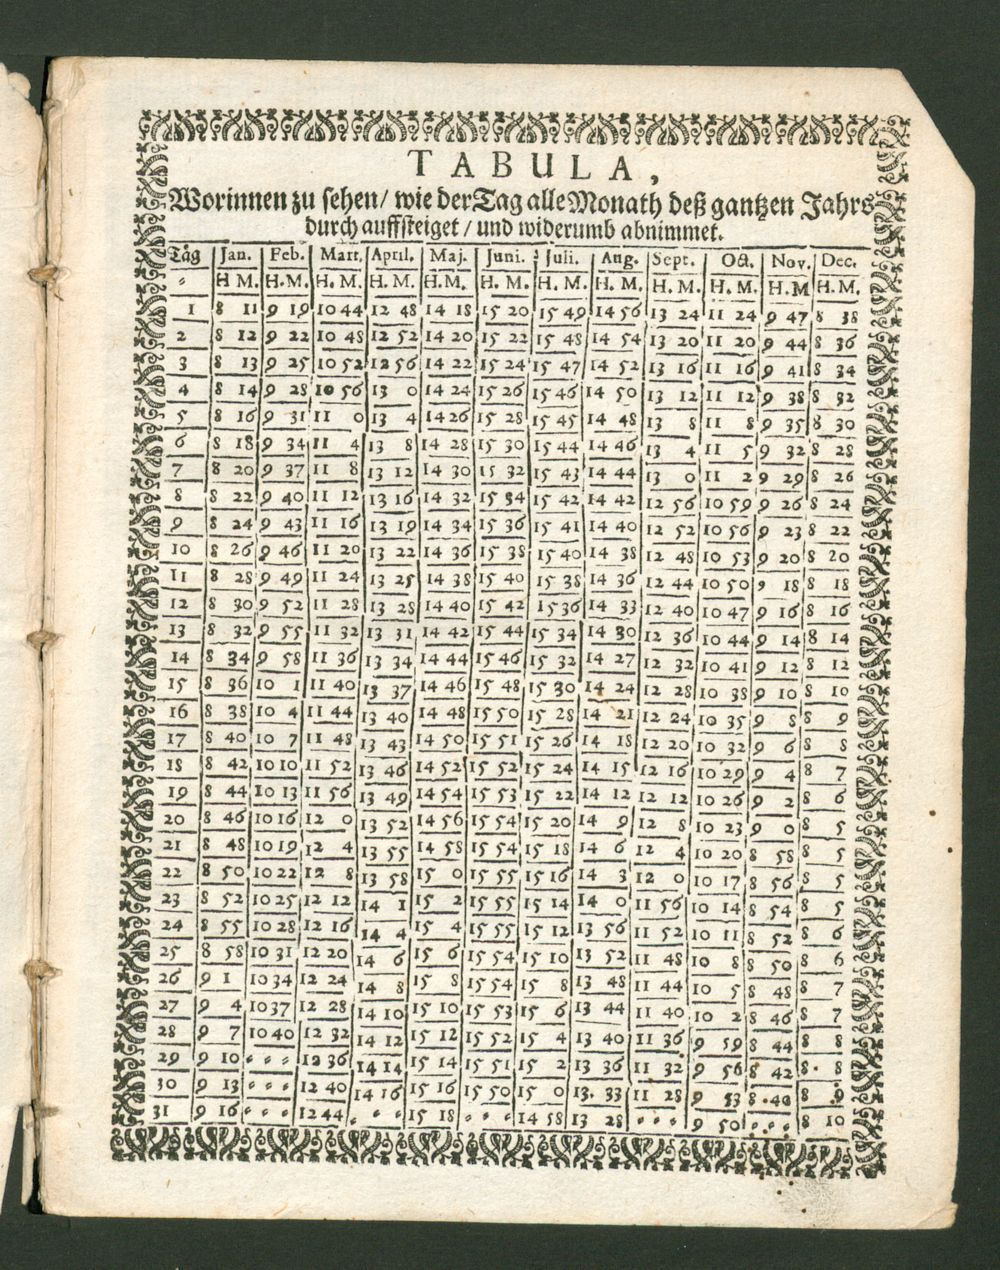 TABULA,
Worinnen zu sehen / wie der Tag alle Monath deß gantzen Jahrs
durch auffsteiget / und widerumb abnimmet.
Tåg Jan. Feb. Mart. April. Maj. Juni. Juli. Aug. Sept. Oct. Nov. Dec.
H M. H. M. H. M. H. M. H. M. H. M. H. M. H. M. H. M. H. M. H. M H. M.
1 8 11 9 19 10 44 12 48 14 18 15 20 15 49 14 56 13 24 11 24 9 47 8 38
2 8 12 9 22 10 48 12 52 14 20 15 22 15 48 14 54 13 20 11 20 9 44 8 36
3 8 13 9 25 10 52 12 56 14 22 15 24 15 47 14 52 13 16 11 16 9 41 8 34
4 8 14 9 28 10 56 13 0 14 24 15 26 15 46 14 50 13 12 11 12 9 38 8 32
5 8 16 9 31 11 0 13 4 14 26 15 28 15 45 14 48 13 8 11 8 9 35 8 30
6 8 18 9 34 11 4 13 8 14 28 15 30 15 44 14 46 13 4 11 5 9 32 8 28
7 8 20 9 37 11 8 13 12 14 30 15 32 15 43 14 44 13 0 11 2 9 29 8 26
8 8 22 9 40 11 12 13 16 14 32 15 34 15 42 14 42 12 56 10 59 9 26 8 24
9 8 24 9 43 11 16 13 19 14 34 15 36 15 41 14 40 12 52 10 56 9 23 8 22
10 8 26 9 46 11 20 13 22 14 36 15 38 15 40 14 38 12 48 10 53 9 20 8 20
11 8 28 9 49 11 24 13 25 14 38 15 40 15 38 14 36 12 44 10 50 9 18 8 18
12 8 30 9 52 11 28 13 28 14 40 15 42 15 36 14 33 12 40 10 47 9 16 8 16
13 8 32 9 55 11 32 13 31 14 42 15 44 15 34 14 30 12 36 10 44 9 14 8 14
14 8 34 9 58 11 36 13 34 14 44 15 46 15 32 14 27 12 32 10 41 9 12 8 12
15 8 36 10 1 11 40 13 37 14 46 15 48 15 30 14 24 12 28 10 38 9 10 8 10
16 8 38 10 4 11 44 13 40 14 48 15 50 15 28 14 21 12 24 10 35 9 8 8 9
17 8 40 10 7 11 48 13 43 14 50 15 51 15 26 14 18 12 20 10 32 9 6 8 8
18 8 42 10 10 11 52 13 46 14 52 15 52 15 24 14 15 12 16 10 29 9 4 8 7
19 8 44 10 13 11 56 13 49 14 54 15 53 15 22 14 12 12 12 10 26 9 2 8 6
20 8 46 10 16 12 0 13 52 14 56 15 54 15 20 14 9 12 8 10 23 9 0 8 5
21 8 48 10 19 12 4 13 55 14 58 15 54 15 18 14 6 12 4 10 20 8 58 8 5
22 8 50 10 22 12 8 13 58 15 0 15 55 15 16 14 3 12 0 10 17 8 56 8 5
23 8 52 10 25 12 12 14 1 15 2 15 55 15 14 14 0 11 56 10 14 8 54 8 5
24 8 55 10 28 12 16 14 4 15 4 15 55 15 12 13 56 11 52 10 11 8 52 8 6
25 8 58 10 31 12 20 14 6 15 6 15 54 15 10 13 52 11 48 10 8 8 50 8 6
26 9 1 10 34 12 24 14 8 15 8 15 54 15 8 13 48 11 44 10 5 8 48 8 7
27 9 4 10 37 12 28 14 10 15 10 15 53 15 6 13 44 11 40 10 2 8 46 8 7
28 9 7 10 40 12 32 14 12 15 12 15 52 15 4 13 40 11 36 9 59 8 44 8 8
29 9 10 12 36 14 14 15 14 15 51 15 2 13 36 11 32 9 56 8 42 8 8
30 9 13 12 40 14 16 15 16 15 50 15 0 13 33 11 28 9 53 8 40 8 9
31 9 16 12 44 15 18 14 58 13 28 9 50 8 10